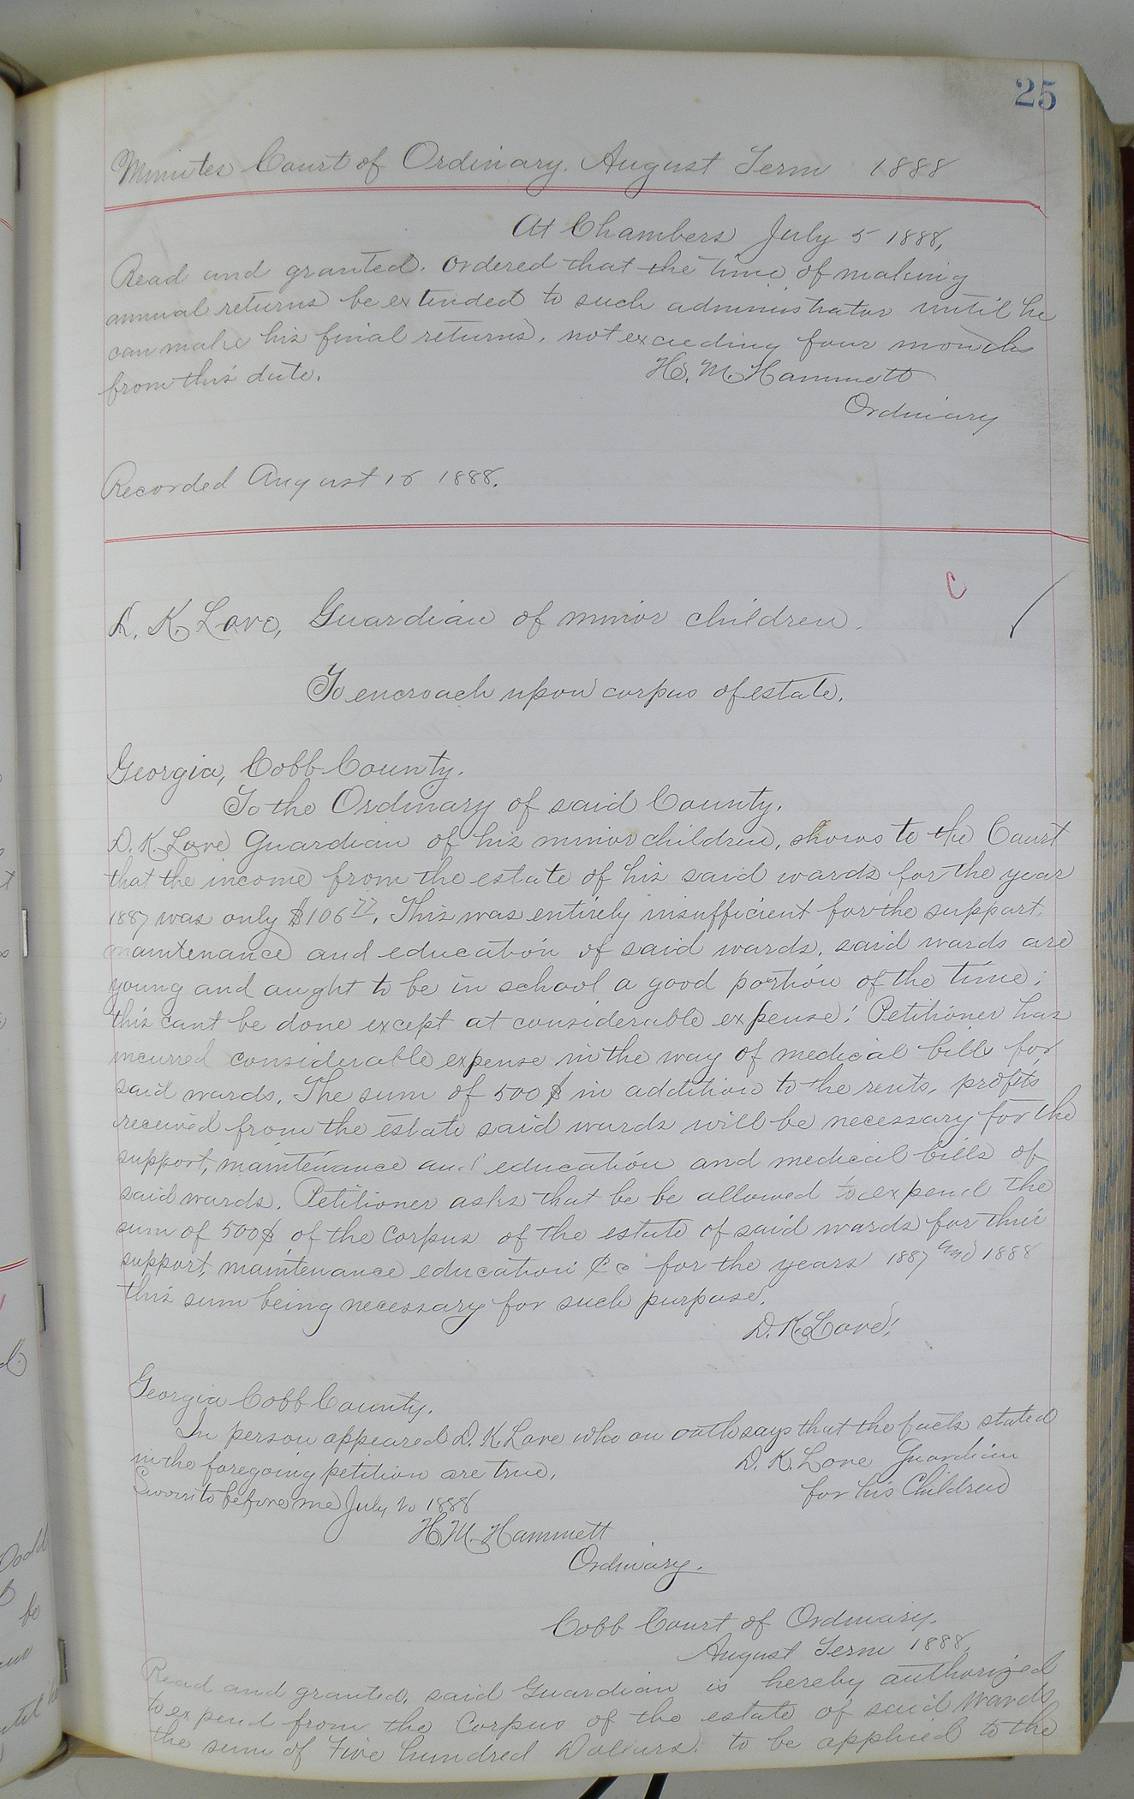 25
Minutes Court of Ordinary. August Term 1888
At Chambers July 5 1888.
Read and granted. Ordered that the time of making
annual returns be extended to such administrator until he
can make his final returns, not exceeding four months
from this date.
H. M. Hammett
Ordinary
Recorded August 16 1888.
C
D. K. Love, Guardian of minor children.
To encroach upon corpus of estate.
Georgia, Cobb County.
To the Ordinary of said County.
D. K. Love Guardian of his minor children, shows to the Court
that the income from the estate of his said wards for the year
1887 was only $106 77. This was entirely insufficient for the support,
maintenance and education of said wards. said wards are
young and aught to be in school a good portion of the time;
this cant be done except at considerable expense; Petitioner has
incurred considerable expense in the way of medical bills for
said wards. The sum of 500$ in addition to the rents, profits
received from the estate said wards will be necessary for the
support, maintenance and education and medical bills of
said wards. Petitioner asks that be be allowed to expend the
sum of 500$ of the corpus of the estate of said wards for their
support, maintenance education &c for the years 1887 and 1888
this sum being necessary for such purpose.
D. K. Love.
Georgia Cobb County.
In person appeared D. K. Love who on oath says that the facts stated
in the foregoing petition are true. D. K. Love Guardian
Sworn to before me July 1888 for his Children
H. M. Hammett
Ordinary.
Cobb Court of Ordinary.
August Term 1888.
Read and granted. said Guardian is hereby authorized
to expend from the Corpus of the estate of said wards
the sum of Five hundred Dollars. to be applied to the